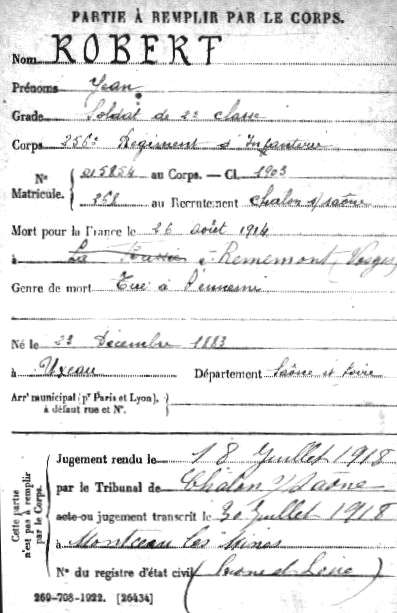 PARTIE À REMPLIR PAR LE CORPS.
Nom ROBERT
Prénoms Jean
Grade Soldat de 2e classe
Corps 256e Régiment d'Infanterie
N° Matricule. { 015854 au Corps. — Cl. 1903
258 au Recrutement Chalon s/saône
Mort pour la France le 26 août 1914
à La à Remémont (Vosges
Genre de mort Tué à l'ennemi
Né le 22 Décembre 1883
à Uxeau Département Saône et Loire
Arrt municipal (pr Paris et Lyon), à défaut rue et N°. {
Cette partie n'est pas à remplir par le Corps.
Jugement rendu le 18 Juillet 1918
par le Tribunal de Chalon s/saône
acte ou jugement transcrit le 30 Juillet 1918
à Montceau les Mines
N° du registre d'état civil (Saône et Loire)
269-708-1922. [26434]